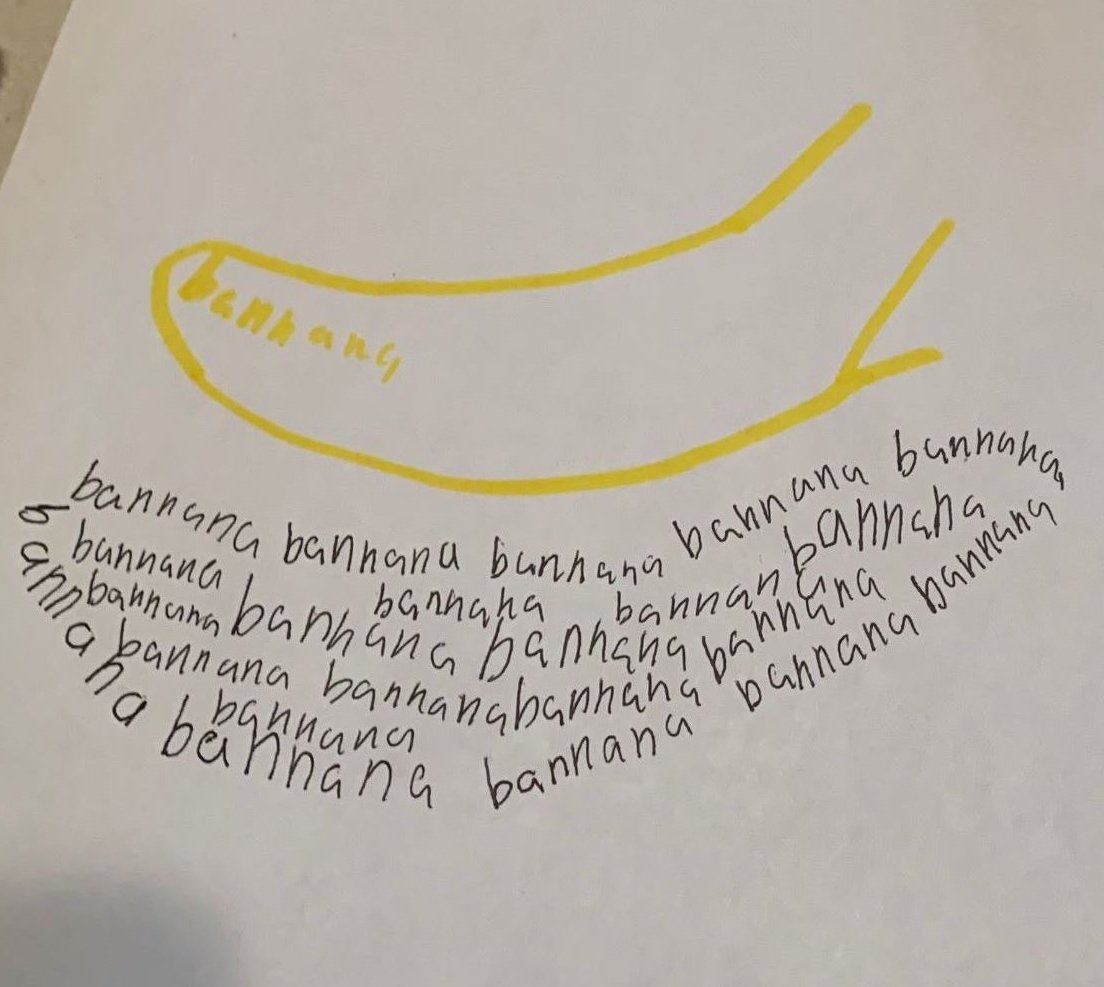 bannana
bannana bannana bannana bannana bannana
bannana bannana bannana bannana
bannana bannana bannana bannana
bannana bannana bannana
bannana
bannana bannana bannana bannana bannana